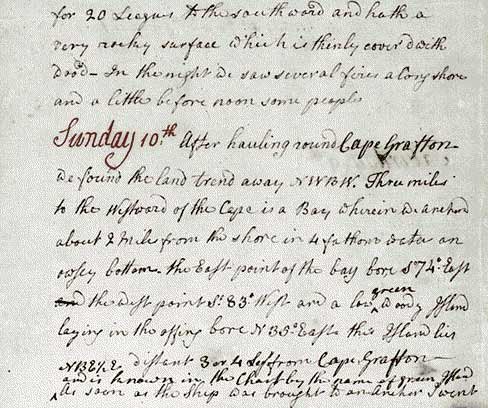 for 20 Leagues to the southward and hath a
very rocky surface which is thinly cover'd with
Wood - In the night we saw several fires along shore
and a little before noon some people
Sunday 10.th After hauling round Cape Grafton
we found the land trend away NWBW. Three miles
to the Westward of the Cape is a Bay wherein we anchord
about 2 Miles from the shore in 4 fathom water an
oosey bottom. the East point of the bay bore S 74° East
the west point S. 83° West and a low green woody Island
laying in the offing bore N 35° East this Island lies
NBE½E distant 3 or 4 Leg from Cape Grafton
and is known in the Chart by the name of green Island
As soon as the Ship was brought to an Anchor I went